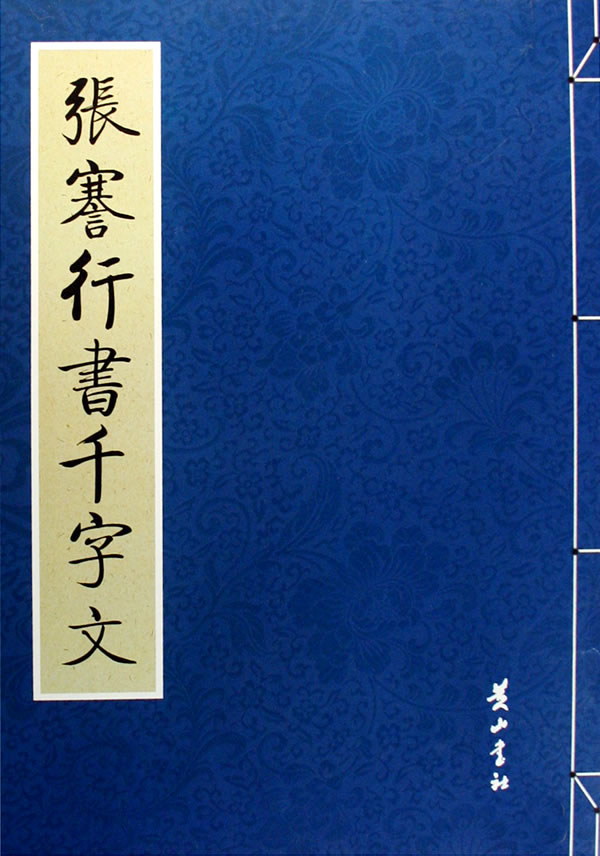 張謇行書千字文
黄山書社